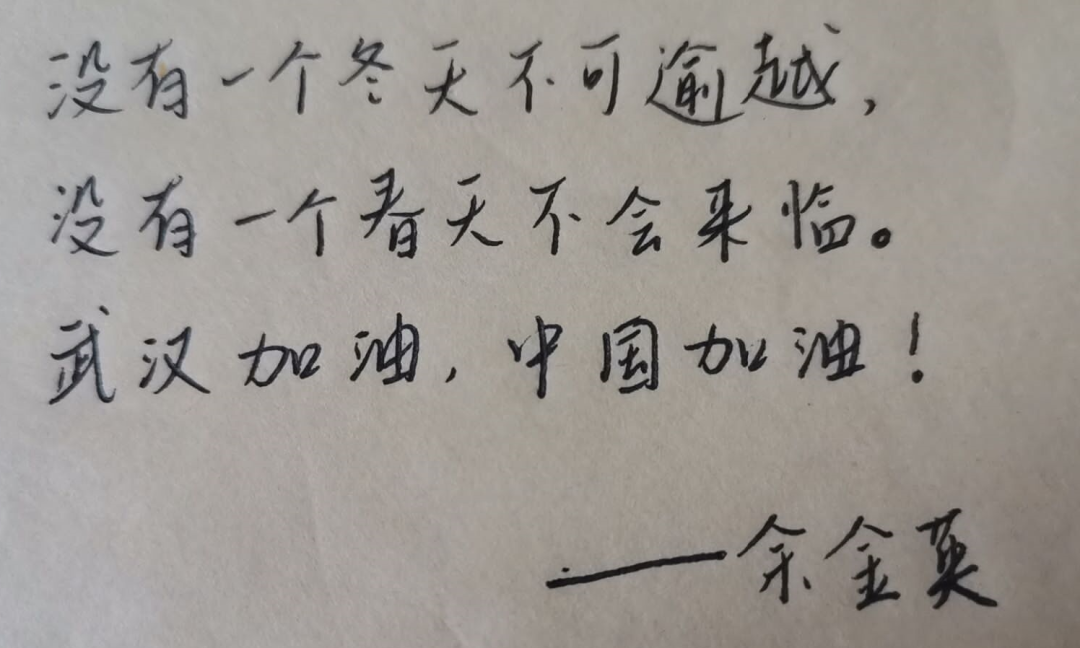 没有一个冬天不可逾越，
没有一个春天不会来临。
武汉加油，中国加油！
——余金英